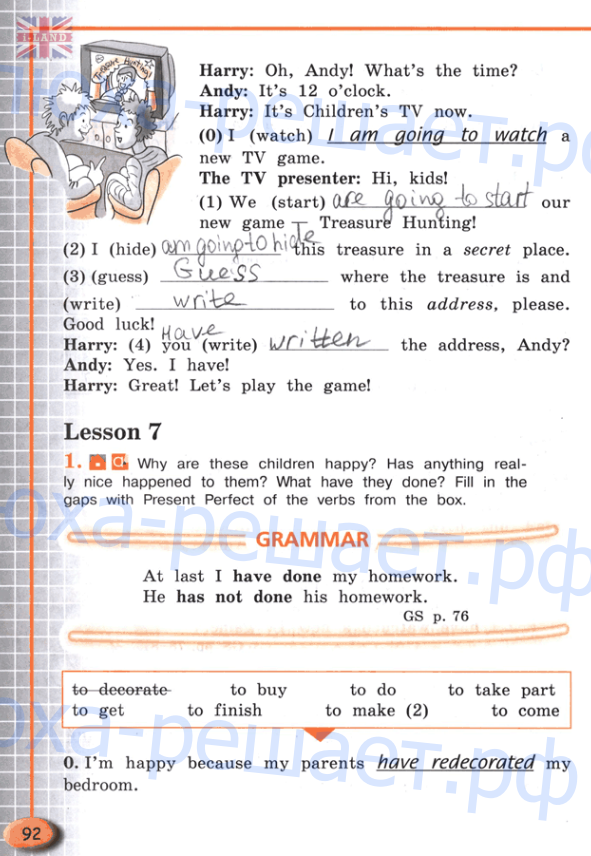 I-LAND
Treasure Hunting!
Harry: Oh, Andy! What's the time?
Andy: It's 12 o'clock.
Harry: It's Children's TV now.
(0) I (watch) I am going to watch a
new TV game.
The TV presenter: Hi, kids!
(1) We (start) are going to start our
new game – Treasure Hunting!
(2) I (hide) am going to hide this treasure in a secret place.
(3) (guess) Guess where the treasure is and
(write) write to this address, please.
Good luck!
Have
Harry: (4) you (write) written the address, Andy?
Andy: Yes. I have!
Harry: Great! Let's play the game!
Lesson 7
1. Why are these children happy? Has anything real-
ly nice happened to them? What have they done? Fill in the
gaps with Present Perfect of the verbs from the box.
GRAMMAR
At last I have done my homework.
He has not done his homework.
GS p. 76
to decorate to buy to do to take part
to get to finish to make (2) to come
0. I'm happy because my parents have redecorated my
bedroom.
92
лоха-решает.рф
лоха-решает.рф
лоха-решает.рф